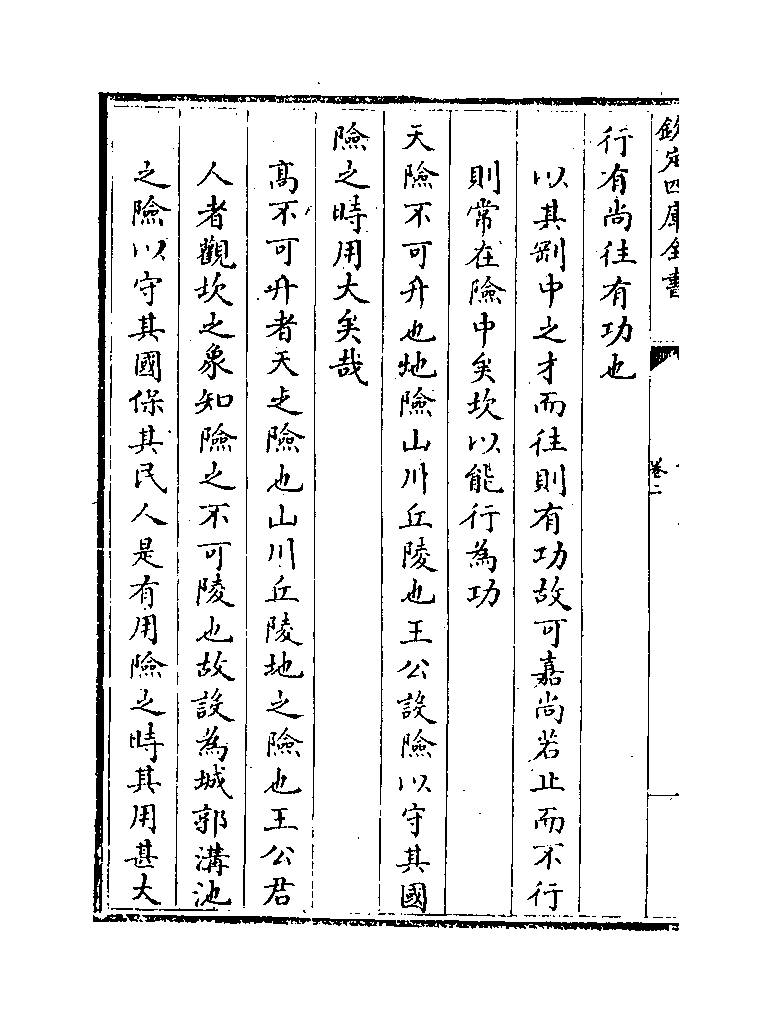 欽定四庫全書
卷二
行有尚往有功也
以其剛中之才而往則有功故可嘉尚若止而不行
則常在險中矣坎以能行為功
天險不可升也地險山川丘陵也王公設險以守其國
險之時用大矣哉
髙不可升者天之險也山川丘陵地之險也王公君
人者觀坎之象知險之不可陵也故設為城郭溝池
之險以守其國保其民人是有用險之時其用甚大